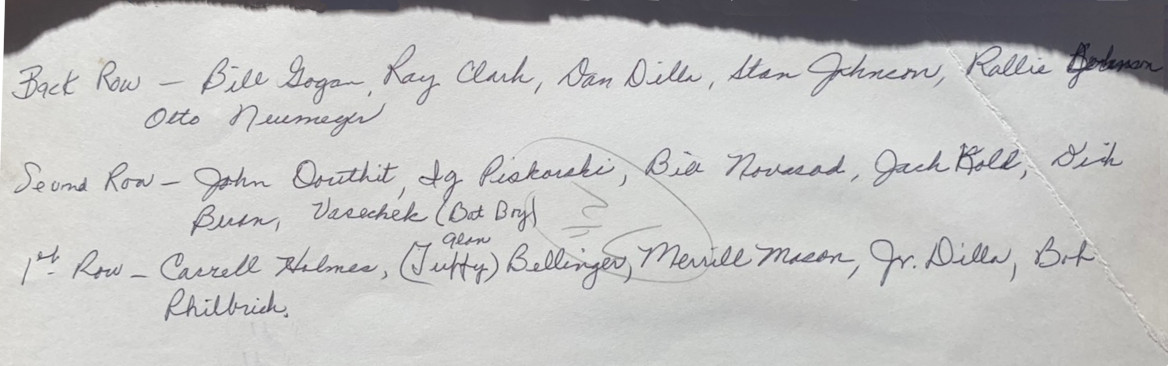 Back Row – Bill Gogan, Ray Clark, Dan Dilla, Stan Johnson, Rallie Johnson
Otto Neumeyer
Second Row – John Douthit, Ig Piskorski, Bill Novasad, Jack Kold, Dick
Buan, Vasechek (Bat Boy)
Glen
1st. Row – Carrell Holmes, (Tuffy) Bellinger, Merrill Mason, Jr. Dilla, Bob
Philbrick.